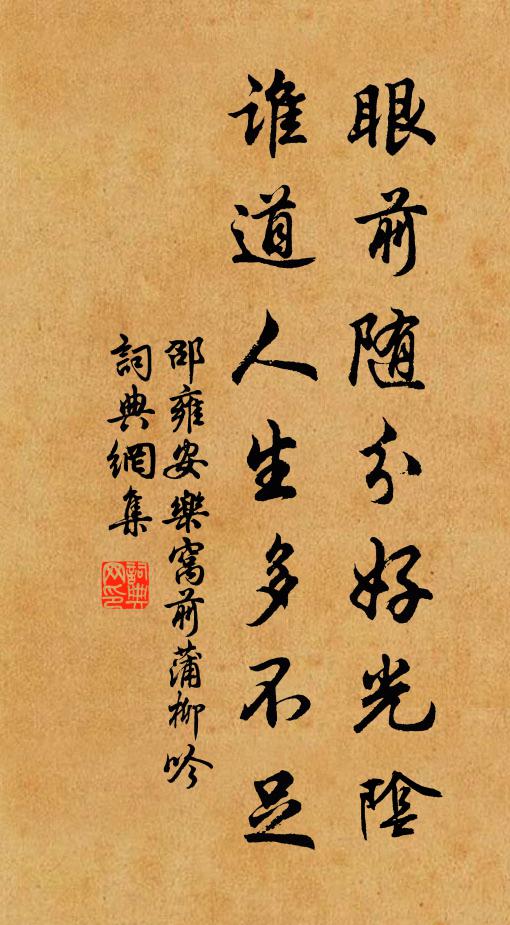 眼前随分好光陰
誰道人生多不足
邵雍安樂窩前蒲柳吟
詞典網集
詞典網印